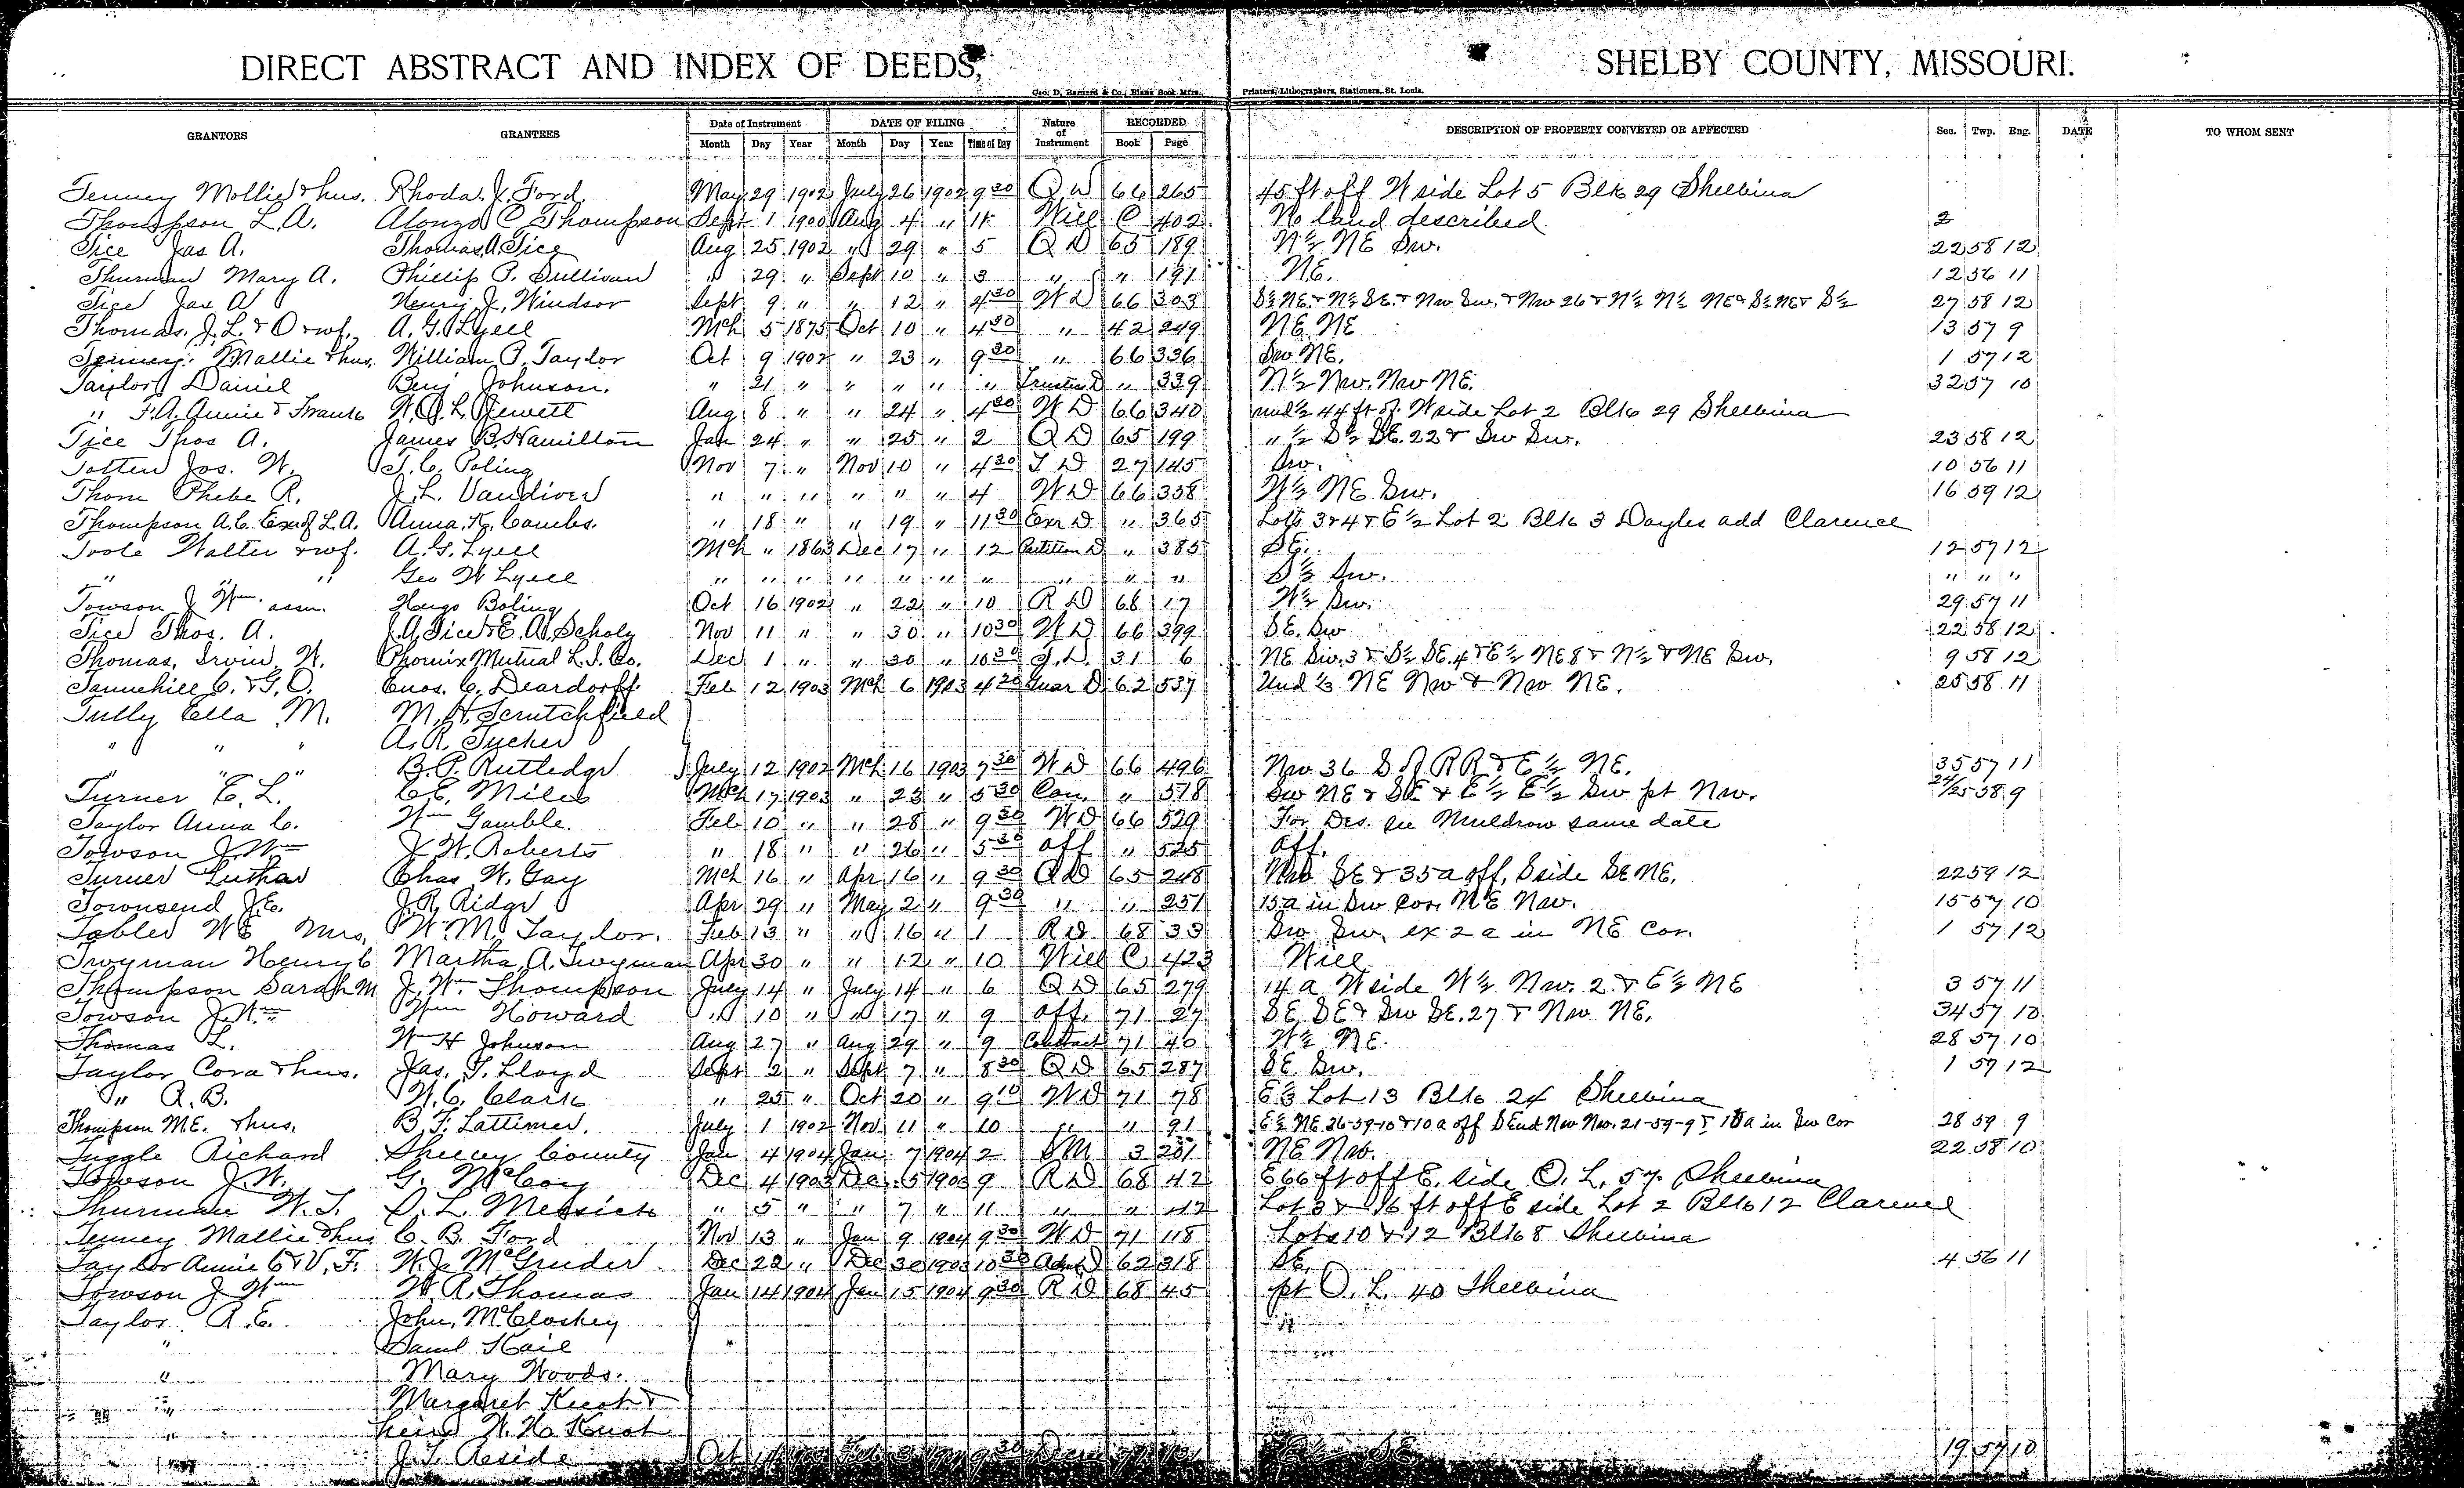 DIRECT ABSTRACT AND INDEX OF DEEDS, SHELBY COUNTY, MISSOURI.
Geo. D. Barnard & Co., Blank Book Mfrs., Printers, Lithographers, Stationers, St. Louis.
GRANTORS GRANTEES Date of Instrument DATE OF FILING Nature of Instrument RECORDED DESCRIPTION OF PROPERTY CONVEYED OR AFFECTED Sec. Twp. Rng. DATE TO WHOM SENT
Month Day Year Month Day Year Time of Day Book Page
Tenney Mollie & hus. Rhoda J. Ford May 29 1902 July 26 1902 9 30 Q D 66 265 45 ft off W side Lot 5 Blk 29 Shelbina
Thompson L. A. Alonzo C Thompson Sept 1 1900 Aug 4 " 11 Will C 402 No land described 2
Tice Jas A. Thomas A Tice Aug 25 1902 " 29 " 5 Q D 65 189 N½ NE Sw. 22 58 12
Thurman Mary A. Phillip P. Sullivan " 29 " Sept 10 " 3 " " 191 NE. 12 56 11
Tice Jas A Henry J. Windsor Sept 9 " " 12 " 4 30 W D 66 303 S½ NE. & N½ SE. & Nw Sw. & Nw 26 & N½ N½ NE & S½ NE & S½ 27 58 12
Thomas, J. L. & O & wf. A. G. Lyell Mch 5 1875 Oct 10 " 4 30 " 42 249 NE NE 13 57 9
Tenney Mallie & hus. William P. Taylor Oct 9 1902 " 23 " 9 30 " 66 336 Sw NE. 1 57 12
Taylor Daniel Benj Johnson. " 21 " " " " " Trustee D " 339 N½ Nw. Nw NE. 32 57 10
" F. A. Annie & Frank W. O. L. Jewett Aug 8 " " 24 " 4 30 W D 66 340 und ½ 44 ft of W side Lot 2 Blk 29 Shelbina
Tice Thos A. James B. Hamilton Jan 24 " " 25 " 2 Q D 65 199 " ½ S½ SE. 22 & Sw Sw. 23 58 12
Totten Jos. W. T. C. Poling Nov 7 " Nov 10 " 4 30 T D 27 145 Sw. 10 56 11
Thom Phebe R. J. L. Vandiver " " " " " " 4 W D 66 358 W½ NE Sw. 16 59 12
Thompson A. C. Exr of L. A. Anna K. Combs. " 18 " " 19 " 11 30 Exr D " 365 Lots 3 & 4 & E½ Lot 2 Blk 3 Dayles add Clarence
Toole Walter & wf. A. G. Lyell Mch " 1863 Dec 17 " 12 Partition D " 385 SE. 12 57 12
" " " Geo W Lyell " " " " " " " " " " S½ Sw. " " "
Towson J Wm assn. Hugo Boling Oct 16 1902 " 22 " 10 R D 68 17 W½ Sw. 29 57 11
Tice Thos. A. J. A. Tice & E. A. Scholy Nov 11 " " 30 " 10 30 W D 66 399 SE. Sw 22 58 12
Thomas, Irvin W. Phoenix Mutual L. I. Co. Dec 1 " " 30 " 10 30 T. D. 31 6 NE Sw. 3 & S½ SE. 4 & E½ NE 8 & N½ & NE Sw. 9 58 12
Tannehill C. & G. O. Enos. C. Deardorff Feb 12 1903 Mch 6 1903 4 20 Guar D 62 537 Und ⅓ NE Nw & Nw NE. 25 58 11
Tully Ella M. M. H. Scrutchfield
" " " A. R. Tucker
" " " B. P. Rutledge July 12 1902 Mch 16 1903 7 30 W D 66 496 Nw 36 S of RR & E½ NE. 35 57 11
Turner E. L. C. E. Miles Mch 17 1903 " 23 " 5 30 Con. " 518 Sw NE & SE & E½ E½ Sw pt Nw. 24/25 58 9
Taylor Anna C. Wm Gamble. Feb 10 " " 28 " 9 30 W D 66 529 For Des. see Muldrow same date
Towson J. Wm J W. Roberts " 18 " " 26 " 5 30 aff " 525 aff.
Turner Luther Chas W. Gay Mch 16 " Apr 16 " 9 30 Q D 65 248 Nw SE & 35 a off S side SE NE. 22 59 12
Townsend J. E. J. R. Ridge Apr 29 " May 2 " 9 30 " " 251 15 a in Sw Cor. NE Nw. 15 57 10
Tabler WE Mrs. W. M. Taylor. Feb 13 " " 16 " 1 R D 68 33 Sw Sw. ex 2 a in NE Cor. 1 57 12
Twyman Henry C Martha A. Twyman Apr 30 " " 12 " 10 Will C 423 Will
Thompson Sarah M J. Wm Thompson July 14 " July 14 " 6 Q D 65 279 14 a W side W½ Nw. 2 & E½ NE 3 57 11
Towson J. Wm Wm Howard " 10 " " 17 " 9 aff. 71 27 SE SE & Sw SE. 27 & Nw NE. 34 57 10
Thomas L. Wm H Johnson Aug 27 " Aug 29 " 9 Contract 71 40 W½ NE. 28 57 10
Taylor Cora & hus. Jas. T. Lloyd Sept 2 " Sept 7 " 8 30 Q D 65 287 SE Sw. 1 59 12
" R. B. W. C. Clark " 25 " Oct 20 " 9 10 W D 71 78 E½ Lot 13 Blk 24 Shelbina
Thompson M. E. & hus. B. F. Lattimer. July 1 1902 Nov 11 " 10 " " 91 E½ NE 36-59-10 & 10 a off S End Nw Nw. 21-59-9 & 10 a in Sw Cor 28 59 9
Tuggle Richard Shelby County Jan 4 1904 Jan 7 1904 2 S M 3 251 NE Nw. 22 58 10
Towson J. W. G. McCoy Dec 4 1903 Dec 5 1903 9 R D 68 42 E 66 ft off E. side O. L. 57. Shelbina
Thurman W. T. O. L. Messick " 5 " " 7 " 11 " " 42 Lot 3 & 16 ft off E side Lot 2 Blk 12 Clarence
Tenney Mallie & hus C. B. Ford Nov 13 " Jan 9 1904 9 30 W D 71 118 Lots 10 & 12 Blk 8 Shelbina
Taylor Annie C & V. F. W. J. McGruder Dec 22 " Dec 30 1903 10 30 Adm D 62 318 SE. 4 56 11
Towson J Wm W. A. Thomas Jan 14 1904 Jan 15 1904 9 30 R D 68 45 pt O. L. 40 Shelbina
Taylor A. E. John McCloskey
" Saml Kail
" Mary Woods.
" Margaret Kust &
" heirs W. H. Kust
" J. T. Reside Oct 9 30 19 57 10